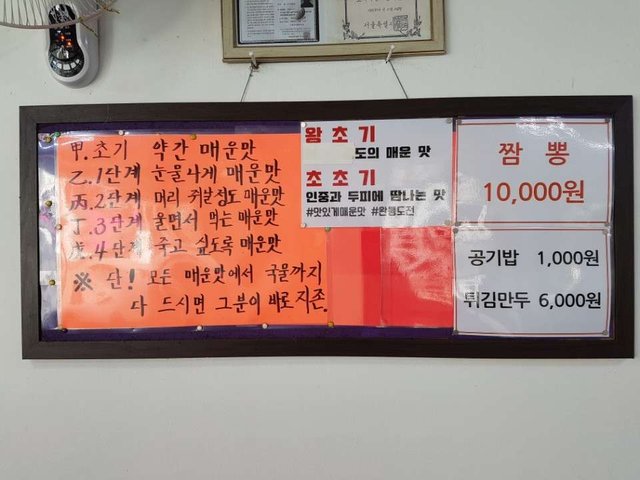 甲.초기 약간 매운맛
乙.1단계 눈물나게 매운맛
丙.2단계 머리 쥐날정도 매운맛
丁.3단계 울면서 먹는 매운맛
戊.4단계 죽고 싶도록 매운맛
※ 산! 모든 매운맛에서 국물까지
다 드시면 그분이 바로 지존.
왕초기
도의 매운 맛
초초기
인중과 두피에 땀나는 맛
#맛있게매운맛 #완뽕도전
짬 뽕
10,000원
공기밥 1,000원
튀김만두 6,000원